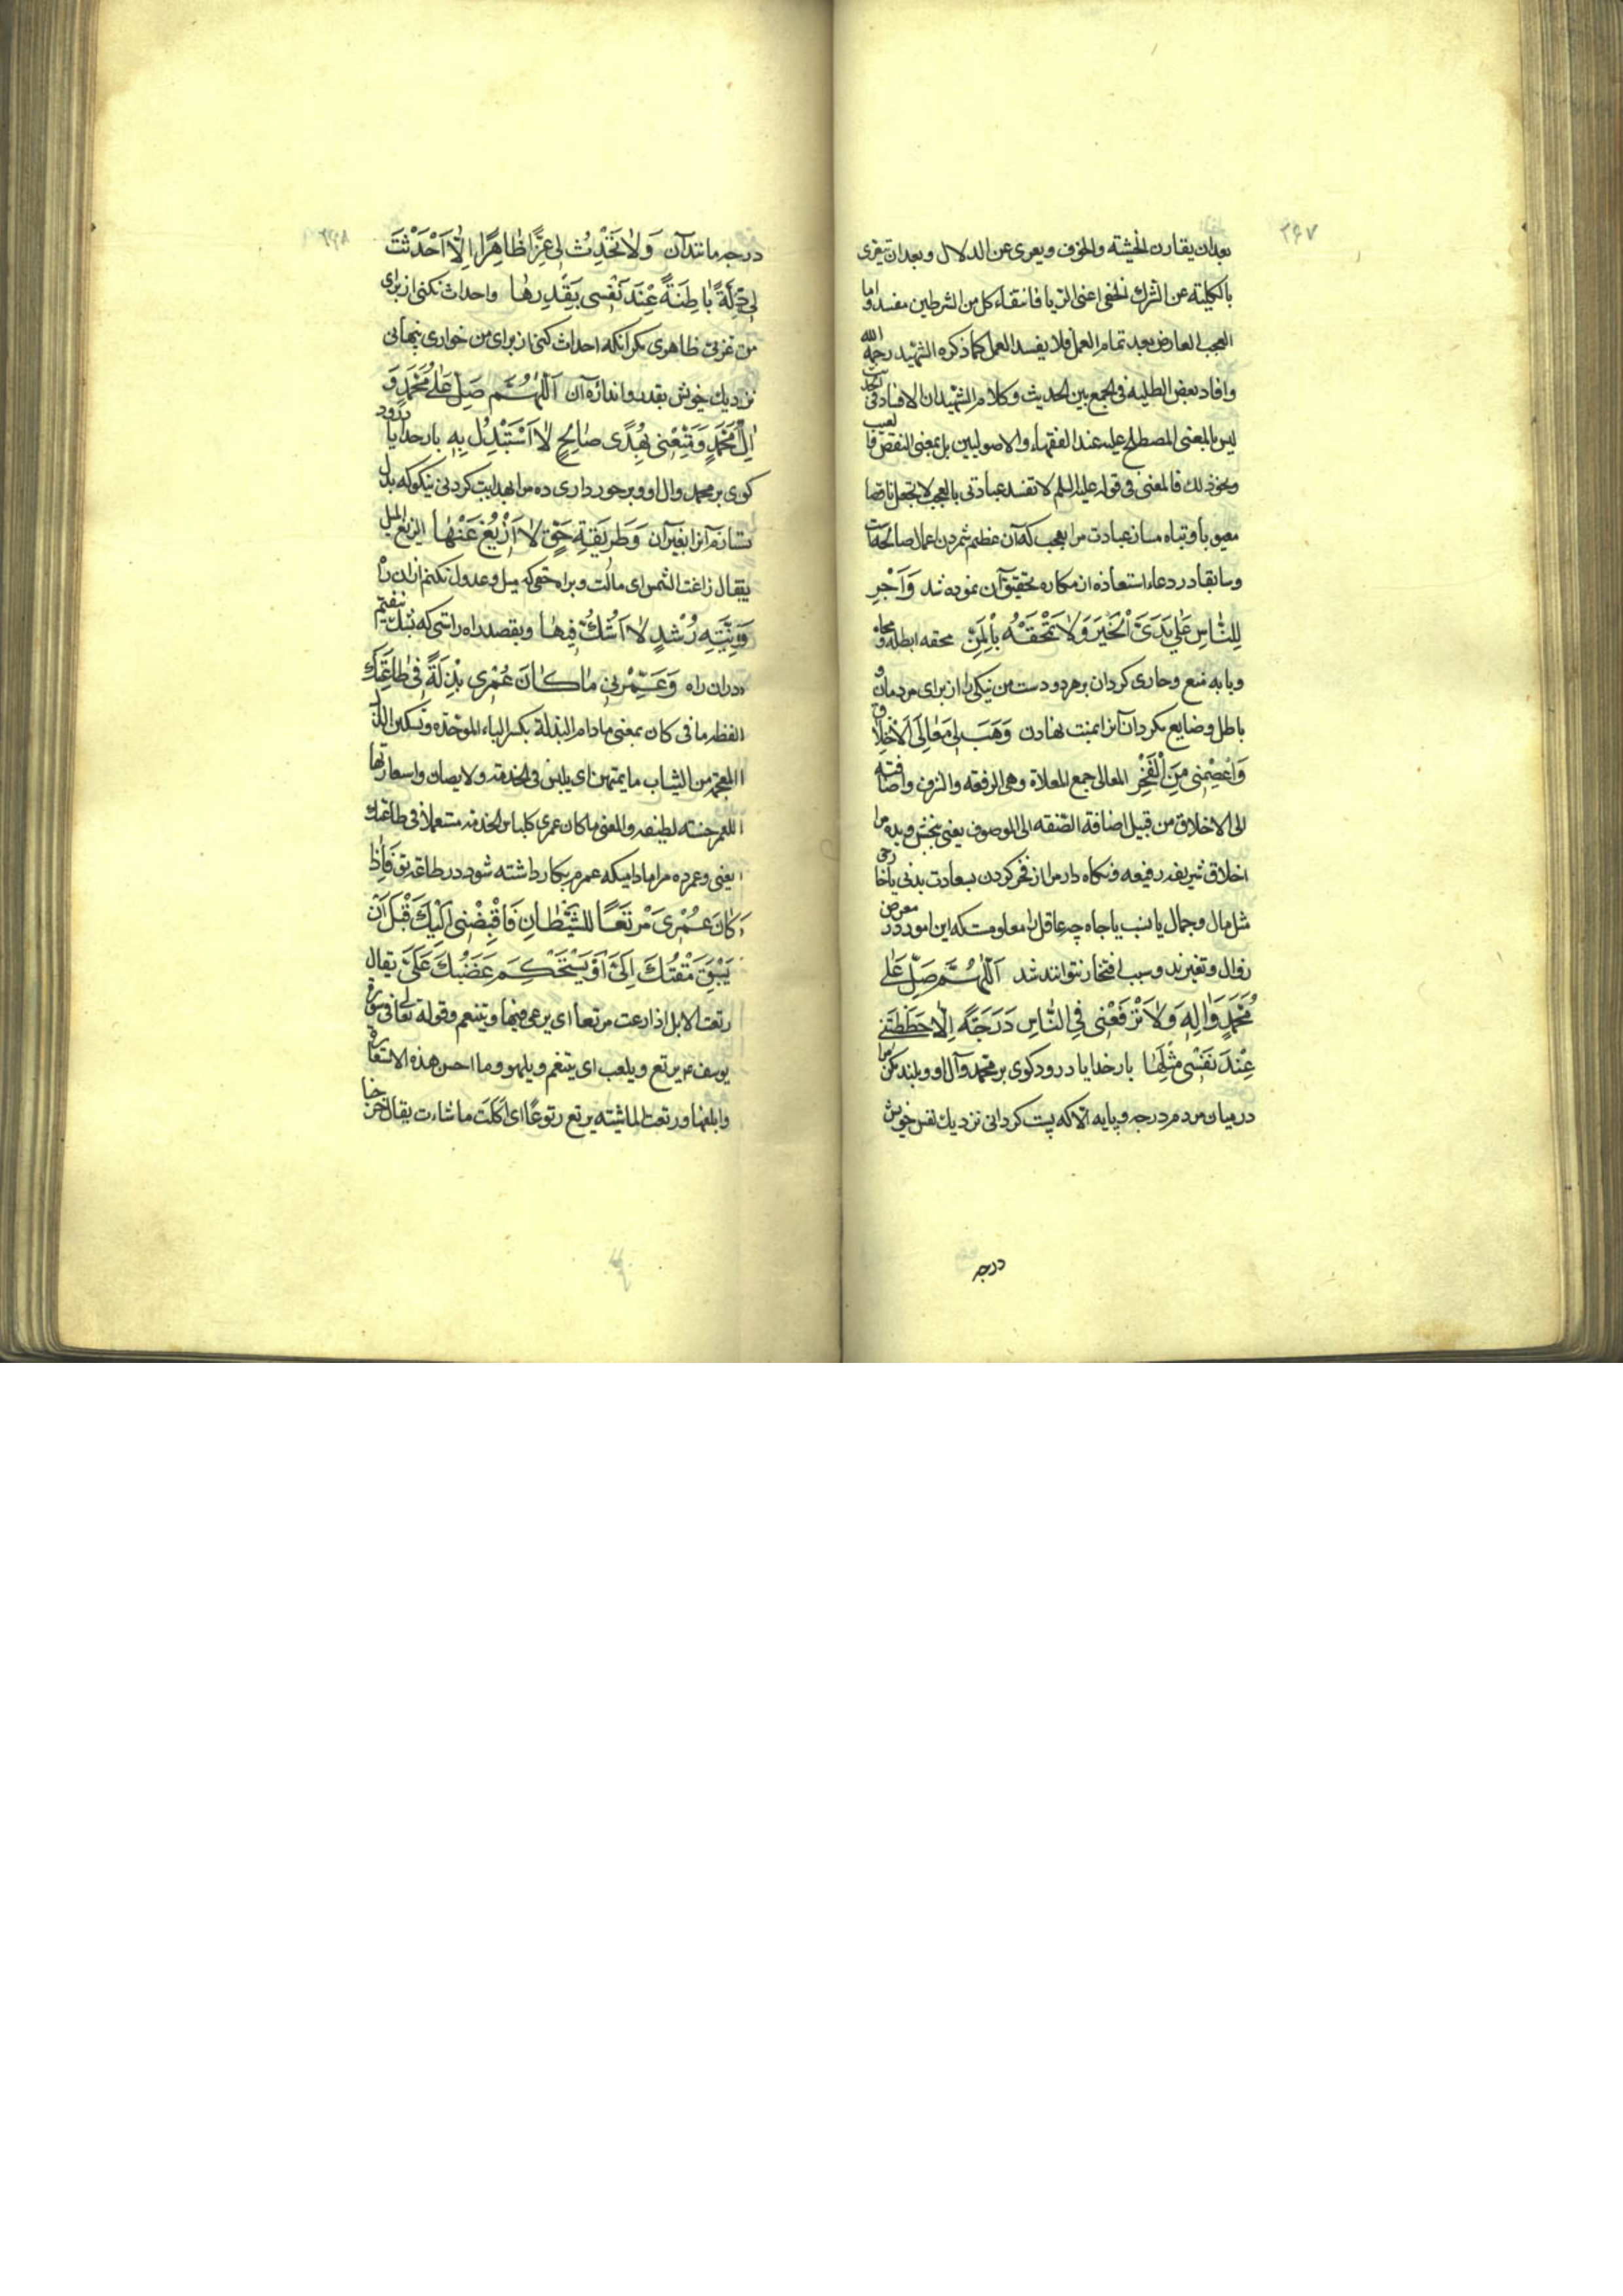 ۲۶۷
بعد ان یقارن الخشیته والخوف ویعری عن الدلال وبعد ان یتعری
بالکلیته عن الشرک الخفی اعنی الریا فانتفاء کل من الشرطین مفسد واما
العجب العارض بعد تمام العمل فلا یفسد العمل کما ذکره الشهید رحمه الله
وافاد بعض الطلبه فی الجمع بین الحدیث وکلام الشهید ان الافساد فی الحدیث
لیس بالمعنی المصطلح علیه عند الفقهاء والاصولیین بل بمعنی النقص والعیب
ونحو ذلک فالمعنی فی قوله علیه السلم لا تفسد عبادتی بالعجب لا تجعل ناقصا
معیوبا وتباه مساز عبادت مرا بعجب که آن عظیم شمردن اعمال صالحه است
وسابقا در دعاء استعاذه از مکاره تحقیق آن نموده شد وَاَجْرِ
لِلنّاسِ عَلٰی یَدَیَّ الْخَیْرَ وَلا تَمْحَقْهُ بِالْمَنِّ محقه ابطله ومحاه
ویا به منع وجاری کردان بر هر دو دست من نیکی را از برای مردمان و
باطل وضایع مکردان آنرا بمنت نهادن وَهَبْ لِی مَعالِیَ الْاَخْلاقِ
وَاعْصِمْنِی مِنَ الْفَخْرِ المعالی جمع المعلاة وهی الرفعه والشرف واضافته
الی الاخلاق من قبیل اضافة الصفه الی الموصوف یعنی ببخش وبده مرا
اخلاق شریفه رفیعه ونکاه دار مرا از فخر کردن بسعادت بدنی یا خارجی
مثل مال وجمال یا نسب یا جاه چه عاقل را معلومست که این امور در معرض
زوال وتغیرند وسبب افتخار نتوانند شد اَللّٰهُمَّ صَلِّ عَلٰی
مُحَمَّدٍ وَاٰلِهِ وَلا تَرْفَعْنِی فِی النّاسِ دَرَجَةً اِلّا حَطَطْتَنِی
عِنْدَ نَفْسِی مِثْلَهٰا بارخدایا درود کوی بر محمد وآل او وبلند مکن مرا
در میان مردم درجه وپایه الا که پست کردانی نزدیک نفس خویش
درجه
۲۶۸
درجه مانند آن وَلا تُحْدِثْ لِی عِزًّا ظاهِرًا اِلّا اَحْدَثْتَ
لِی ذِلَّةً باطِنَةً عِنْدَ نَفْسِی بِقَدَرِهٰا واحداث نکنی از برای
من عزتی ظاهری مکر آنکه احداث کنی از برای من خواری پنهانی
نزدیک خویش بقدر واندازه آن اَللّٰهُمَّ صَلِّ عَلٰی مُحَمَّدٍ وَ
اٰلِ مُحَمَّدٍ وَمَتِّعْنِی بِهُدًی صالِحٍ لا اَسْتَبْدِلُ بِهِ بارخدایا درود
کوی بر محمد وال او وبرخورداری ده مرا بهدایت کردنی نیکو که بدل
نستانم آنرا بغیر آن وَطَرِیقَةِ حَقٍّ لا اَزِیْغُ عَنْهٰا الزیغ المیل
یقال زاغت الشمس ای مالت وبراه حقی که میل وعدول نکنم از ان راه
وَنِیَّةِ رُشْدٍ لا اَشُکُّ فِیهٰا وبقصد راه راستی که بشک نیفتم
در ان راه وَعَمِّرْنِی ما کانَ عُمْرِی بِذْلَةً فِی طاعَتِکَ
لفظه ما فی کان بمعنی مادام البذلة بکسر الباء الموحده وتسکین الذال
المعجمه من الثیاب ما یمتهن ای یلبس فی الخدمه ولا یصان واستعارتها
للعمر حسنه لطیفه والمعنی ما کان عمری کلباس الخدمه مستعملا فی طاعتک
یعنی وعمر ده مرا مادامیکه عمرم بکار داشته شود در طاعت تو فَاِذا
کانَ عُمْرِی مَرْتَعًا لِلشَّیْطانِ فَاقْبِضْنِی اِلَیْکَ قَبْلَ اَنْ
یَسْبِقَ مَقْتُکَ اِلَیَّ اَوْ یَسْتَحْکِمَ غَضَبُکَ عَلَیَّ یقال
رتعت الابل اذا رعت مرتعا ای یرعی فیها ویتنعم وقوله تعالی فی سورة
یوسف م یرتع ویلعب ای یتنعم ویلهو وما احسن هذه الاستعارة
وابلغها ورتعت الماشیته یرتع رتوعًا ای اَکَلَت ما شاءت یقال خرجنا